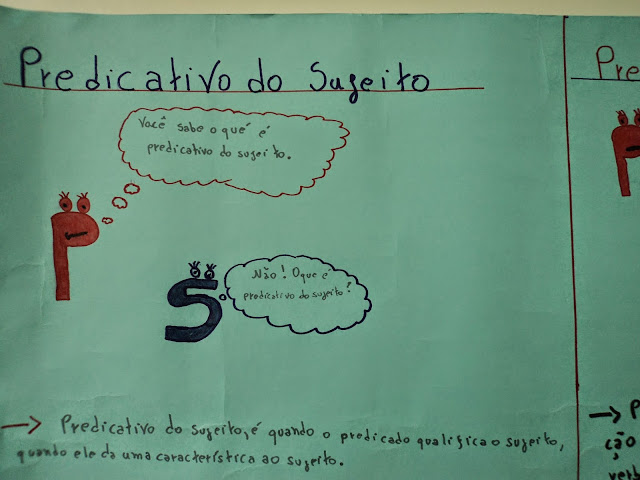 Predicativo do Sujeito
Você sabe o qué é
predicativo do sujeito.
Não! Oque é
predicativo do sujeito?
→ Predicativo do sujeito, é quando o predicado qualifica o sujeito,
quando ele da uma característica ao sujeito.
Pre
→ P
ção
verb